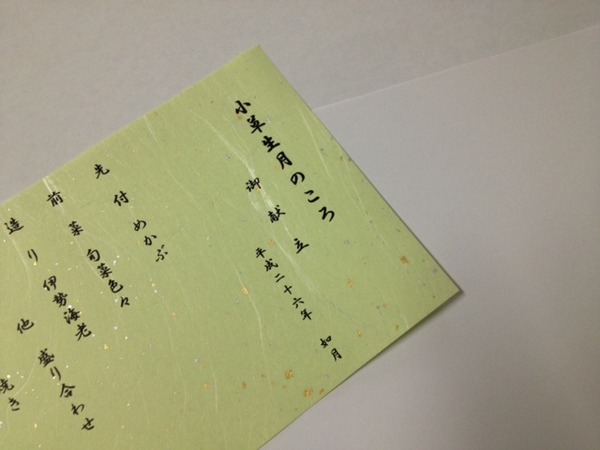 小草生月のころ
御献立
平成二十六年 如月
先付 めかぶ
前菜 旬菜色々
造り 伊勢海老 他 盛り合わせ
焼き